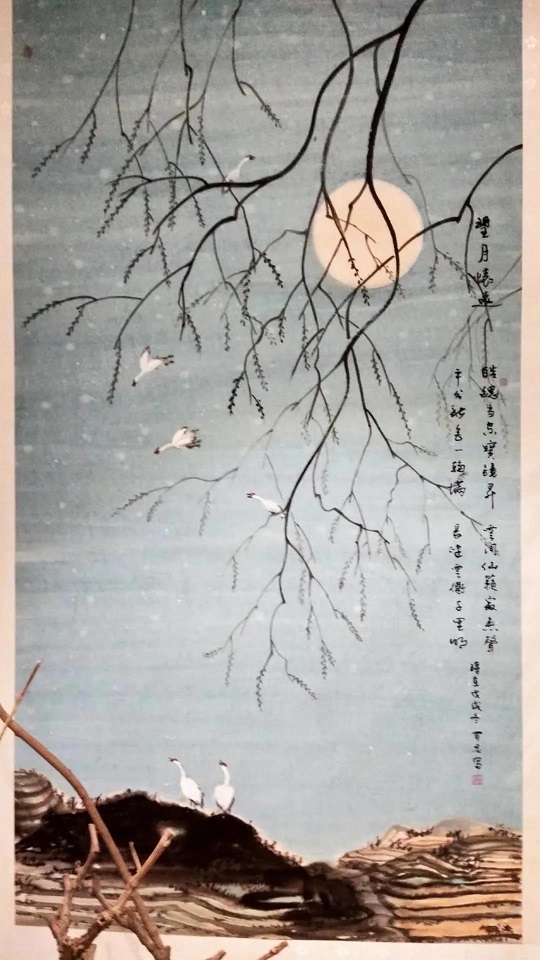 望月懷遠
皓魄当空寶鏡昇 雲間仙籟寂無聲
平分秋色一輪滿 長伴雲衢千里明
時在戊戌冬